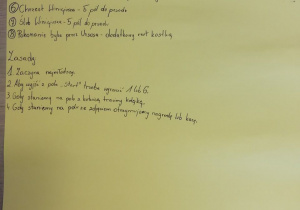 ⑥ Chorost Wensjona - 5 pól do przodu
⑦ Ślub Wensjona - 5 pól do przodu
⑧ Pokonanie byka przez Ursusa - dodatkowy rzut kostką
Zasady
1. Zaczyna najmłodszy.
2. Aby wyjść z pola "Start" trzeba wyrzucić 1 lub 6.
3. Gdy staniemy na polu z kostką rzucamy kostką.
4. Gdy staniemy na polu ze zdjęciem otrzymujemy nagrodę lub karę.